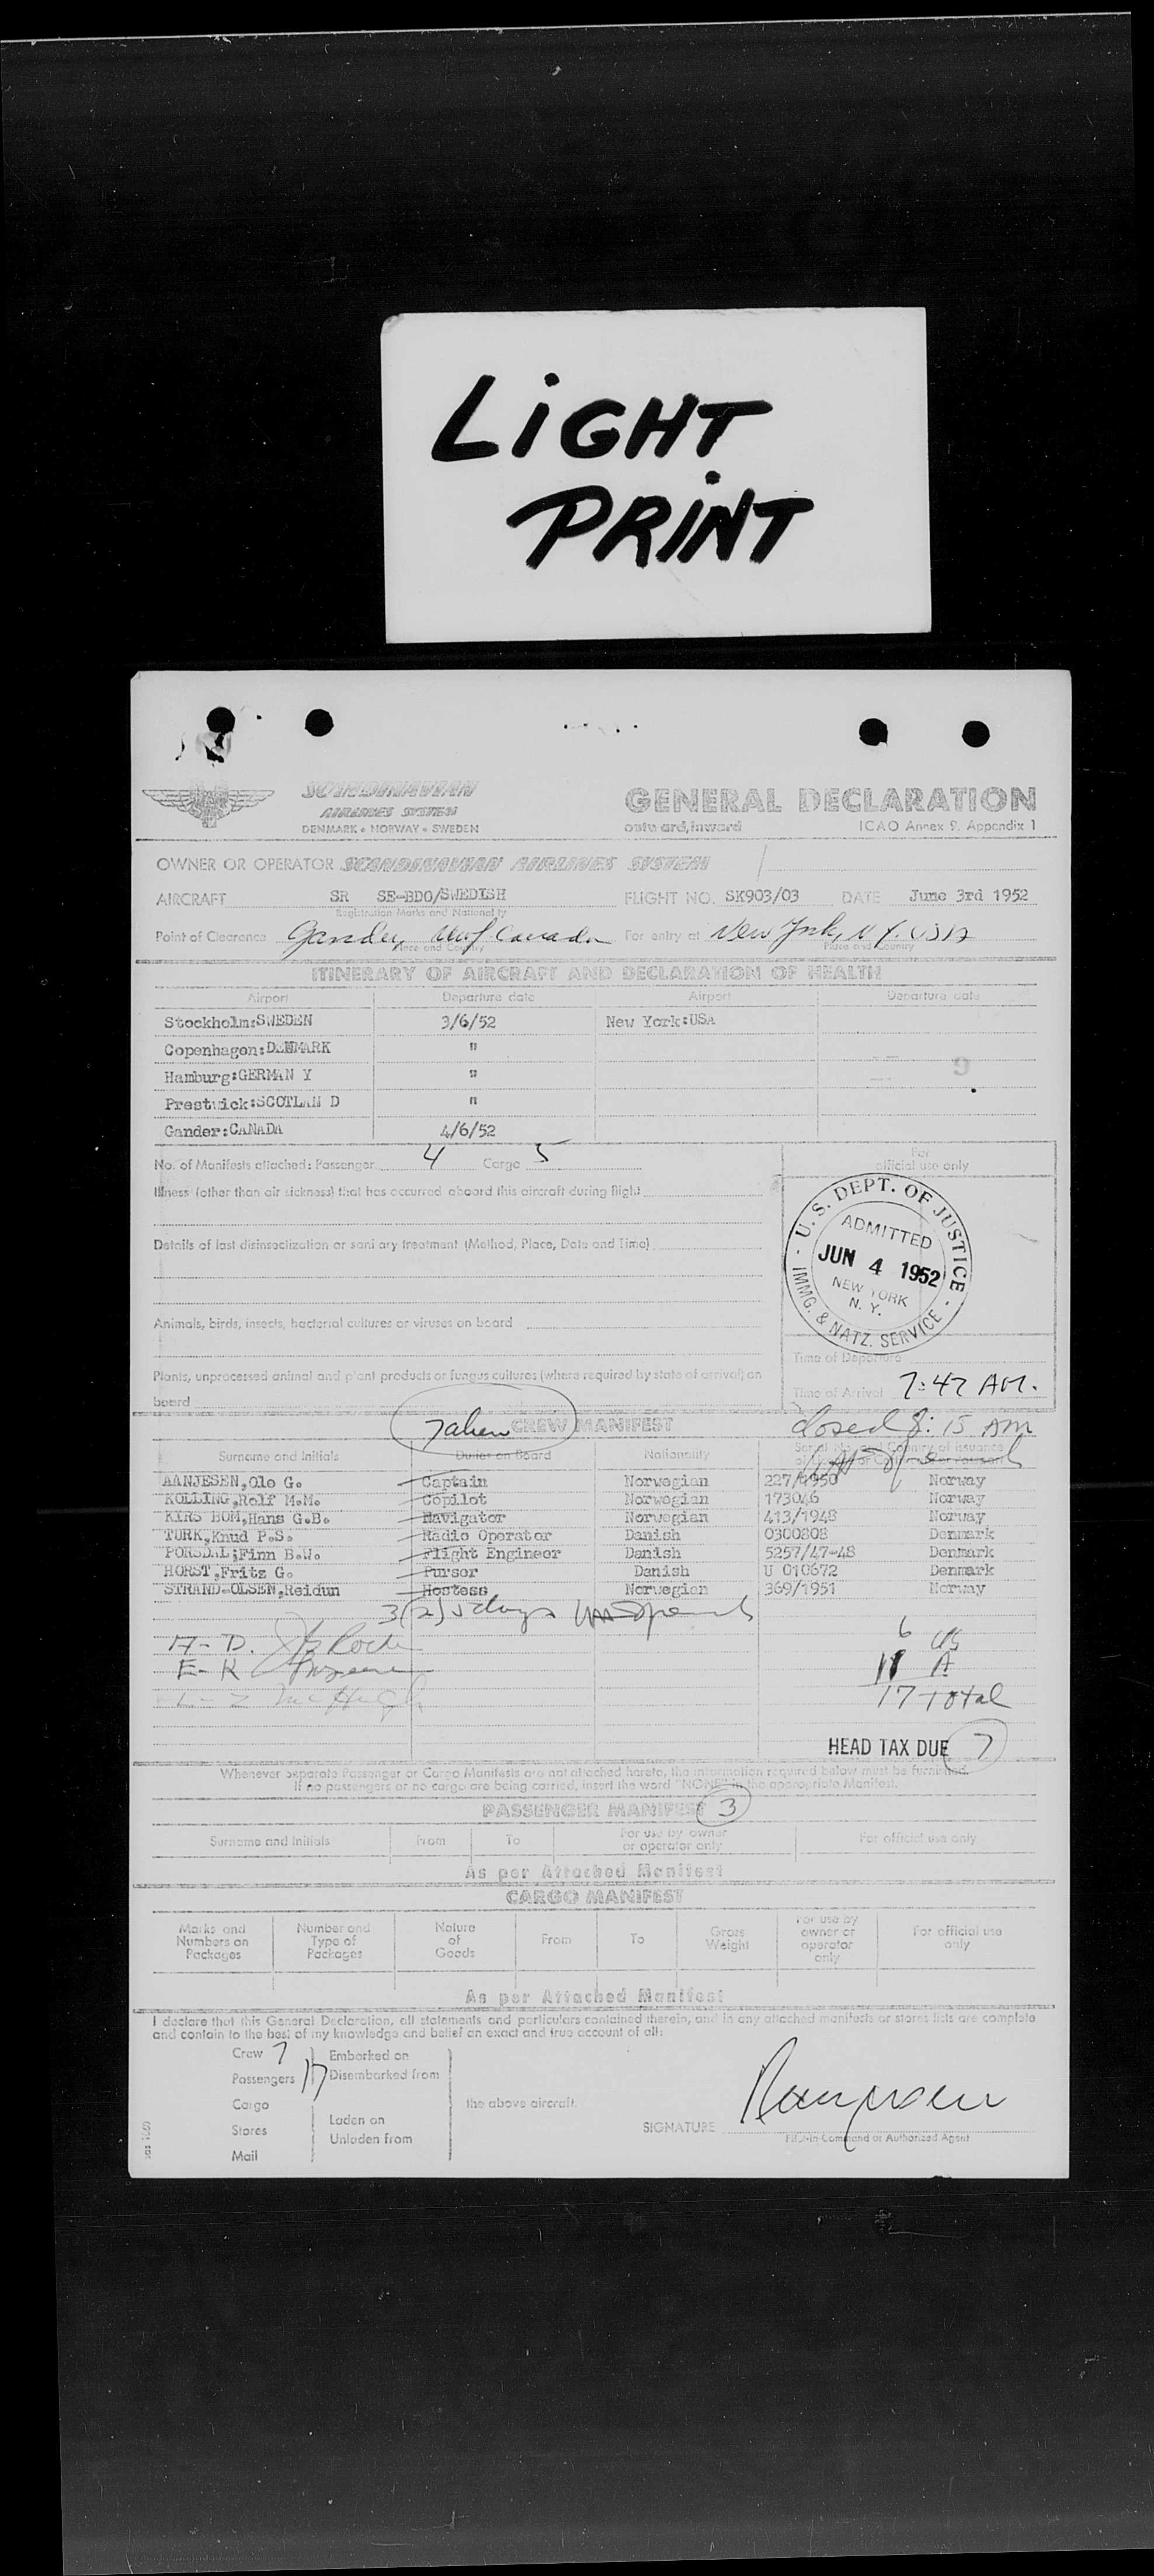 LiGHT
PRINT
SCANDINAVIAN
AIRLINES SYSTEM
DENMARK • NORWAY • SWEDEN
GENERAL DECLARATION
outward, inward
ICAO Annex 9, Appendix 1
OWNER OR OPERATOR SCANDINAVIAN AIRLINES SYSTEM
AIRCRAFT SR SE-BDO/SWEDISH FLIGHT NO. SK903/03 DATE June 3rd 1952
Registration Marks and Nationality
Point of Clearance Gander, Canada For entry at New York, N.Y. USA
Place and Country Place and Country
ITINERARY OF AIRCRAFT AND DECLARATION OF HEALTH
Airport Departure date Airport Departure date
Stockholm:SWEDEN 3/6/52 New York:USA
Copenhagen:DENMARK "
Hamburg:GERMAN Y " 9
Prestwick:SCOTLAN D "
Gander:CANADA 4/6/52
No. of Manifests attached: Passenger 4 Cargo 5
For
official use only
Illness (other than air sickness) that has occurred aboard this aircraft during flight
Details of last disinsectization or sanitary treatment (Method, Place, Date and Time)
Animals, birds, insects, bacterial cultures or viruses on board
Plants, unprocessed animal and plant products or fungus cultures (where required by state of arrival) on
board
U. S. DEPT. OF JUSTICE
ADMITTED
JUN 4 1952
NEW YORK
N. Y.
IMMG. & NATZ. SERVICE
Time of Departure
Time of Arrival 7:47 AM.
Taken CREW MANIFEST closed 8:15 AM
Surname and Initials Duties on Board Nationality Serial No. and Country of issuance
AANJESEN,Ole G. Captain Norwegian 227/4950 Norway
KOLLING,Rolf M.M. Copilot Norwegian 173046 Norway
KIRS BOM,Hans G.B. Navigator Norwegian 413/1948 Norway
TURK,Knud P.S. Radio Operator Danish 0300808 Denmark
PORSDAL,Finn B.W. Flight Engineer Danish 5257/47-48 Denmark
HORST,Fritz G. Purser Danish U 010672 Denmark
STRAND-OLSEN,Reidun Hostess Norwegian 369/1951 Norway
3(2) 5 days
A- D. 6 US
E- K 11 A
L- Z McHugh 17 Total
HEAD TAX DUE 7
Whenever separate Passenger or Cargo Manifests are not attached hereto, the information required below must be furnished.
If no passengers or no cargo are being carried, insert the word "NONE" in the appropriate Manifest.
PASSENGER MANIFEST 3
Surname and Initials From To For use by owner or operator only For official use only
As per Attached Manifest
CARGO MANIFEST
Marks and Numbers on Packages Number and Type of Packages Nature of Goods From To Gross Weight For use by owner or operator only For official use only
As per Attached Manifest
I declare that this General Declaration, all statements and particulars contained therein, and in any attached manifests or stores lists are complete
and contain to the best of my knowledge and belief an exact and true account of all:
Crew 7 Embarked on
Passengers 17 Disembarked from
Cargo the above aircraft.
Stores Laden on
Unladen from
Mail
SIGNATURE
Pilot-in-Command or Authorized Agent